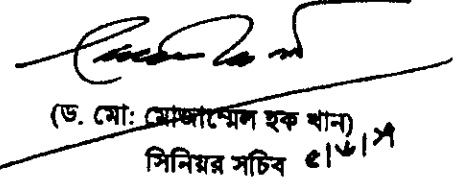 (ড. মো: মোজাম্মেল হক খান)
সিনিয়র সচিব